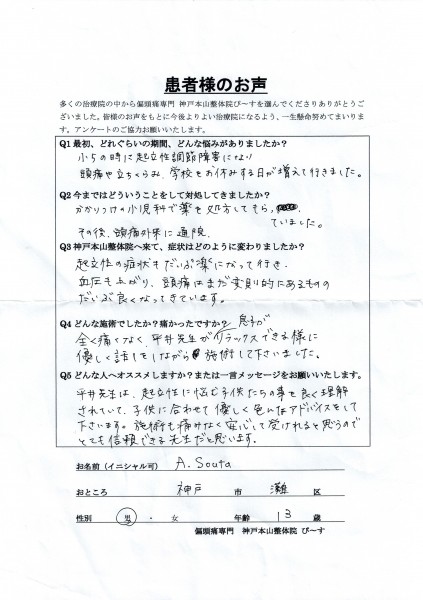 患者様のお声
多くの治療院の中から偏頭痛専門 神戸本山整体院ぴ~すを選んでくださりありがとうご
ざいました。皆様のお声をもとに今後よりよい治療院になるよう、一生懸命努めてまいりま
す。アンケートのご協力お願いいたします。
Q1 最初、どれぐらいの期間、どんな悩みがありましたか?
小5の時に起立性調節障害になり
頭痛や立ちくらみ、学校をお休みする日が増えて行きました。
Q2 今まではどういうことをして対処してきましたか?
かかりつけの小児科で薬を処方してもらっ
ていました。
その後、頭痛外来に通院、
Q3 神戸本山整体院へ来て、症状はどのように変わりましたか?
起立性の症状もだいぶ楽になって行き、
血圧も上がり、頭痛はまだ変則的にあるものの
だいぶ良くなってきています。
Q4 どんな施術でしたか?痛かったですか?
息子が
全く痛くなく、平井先生がリラックスできる様に
優しく話しをしながら施術して下さいました。
Q5 どんな人へオススメしますか?または一言メッセージをお願いいたします。
平井先生は、起立性に悩む子供たちの事を良く理解
されていて、子供に合わせて優しく色んなアドバイスをして
下さいます。施術も痛みなく安心して受けれると思うので
とても信頼できる先生だと思います。
お名前(イニシャル可) A. Souta
おところ 神戸 市 灘 区
性別 男 ・ 女 年齢 13 歳
偏頭痛専門 神戸本山整体院 ぴ~す